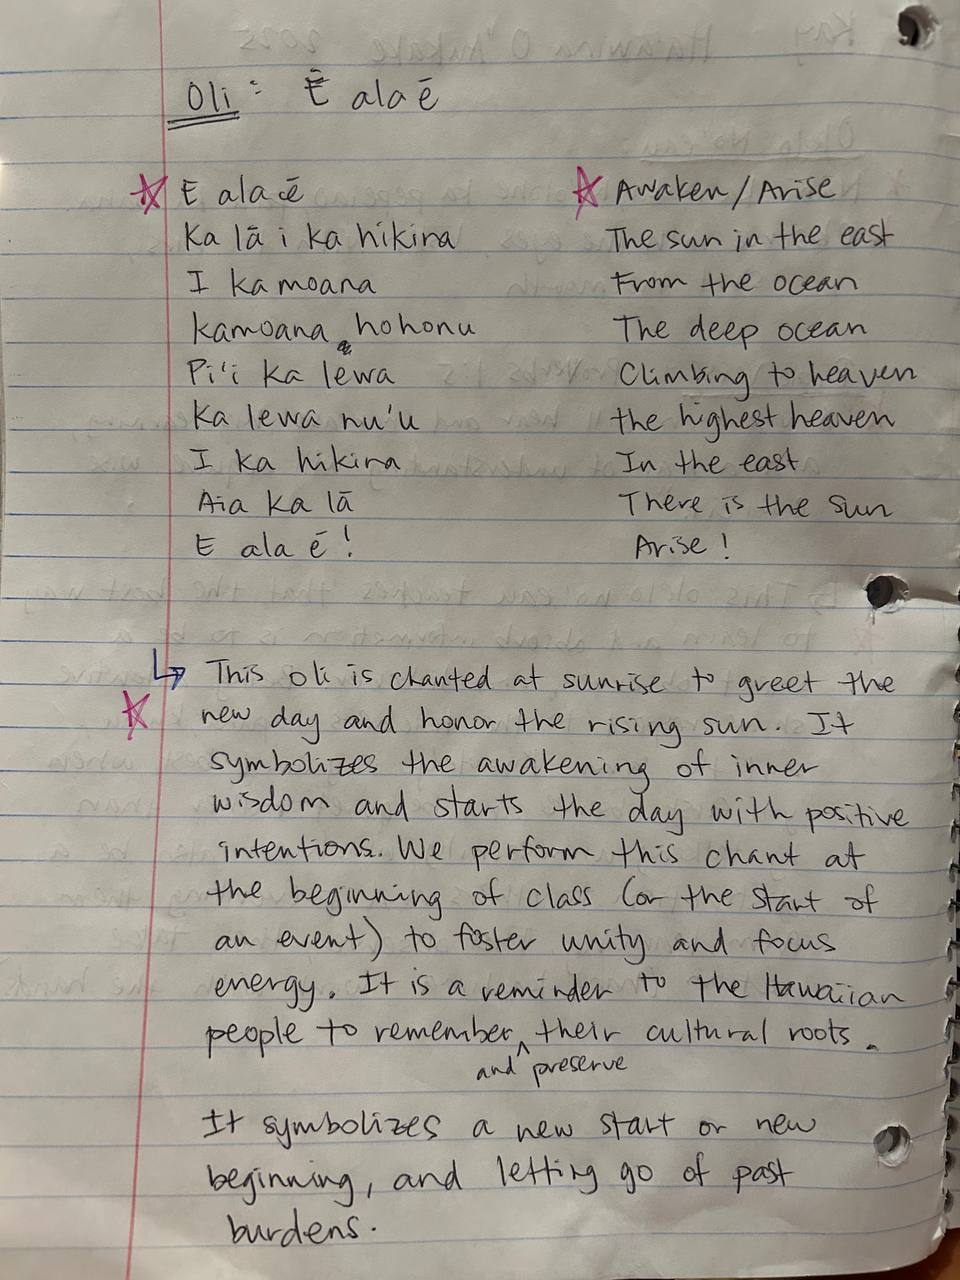 Oli: Ē ala ē
E ala ē
Ka lā i ka hikina
I ka moana
Ka moana hohonu
Pi'i ka lewa
Ka lewa nu'u
I ka hikina
Aia ka lā
E ala ē!
Awaken/Arise
The sun in the east
From the ocean
The deep ocean
Climbing to heaven
the highest heaven
In the east
There is the sun
Arise!
↳ This oli is chanted at sunrise to greet the
new day and honor the rising sun. It
symbolizes the awakening of inner
wisdom and starts the day with positive
intentions. We perform this chant at
the beginning of class (or the start of
an event) to foster unity and focus
energy. It is a reminder to the Hawaiian
people to remember ^ their cultural roots.
and preserve
It symbolizes a new start or new
beginning, and letting go of past
burdens.